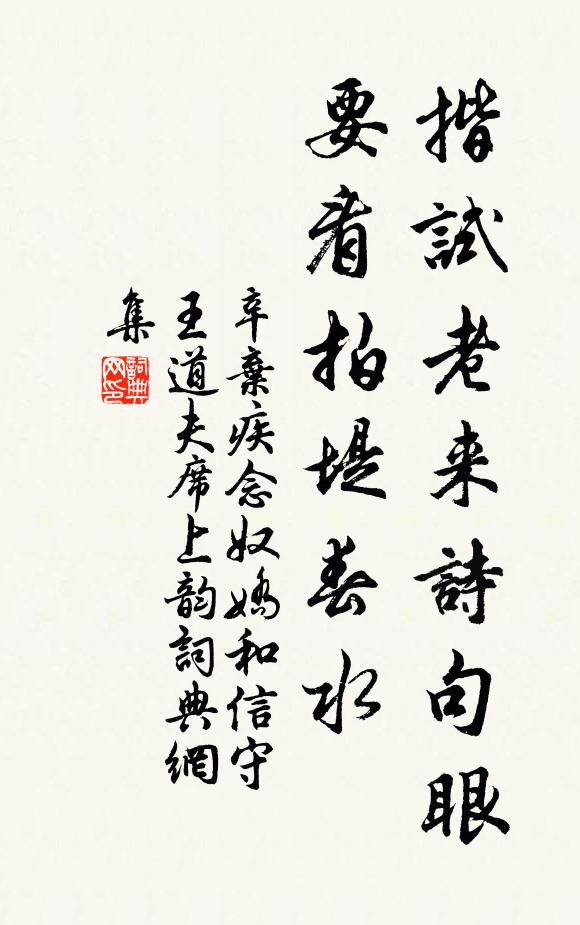 揩試老来詩句眼
要看拍堤春水
辛棄疾念奴嬌和信守
王道夫席上韵詞典網
集
詞典
网印